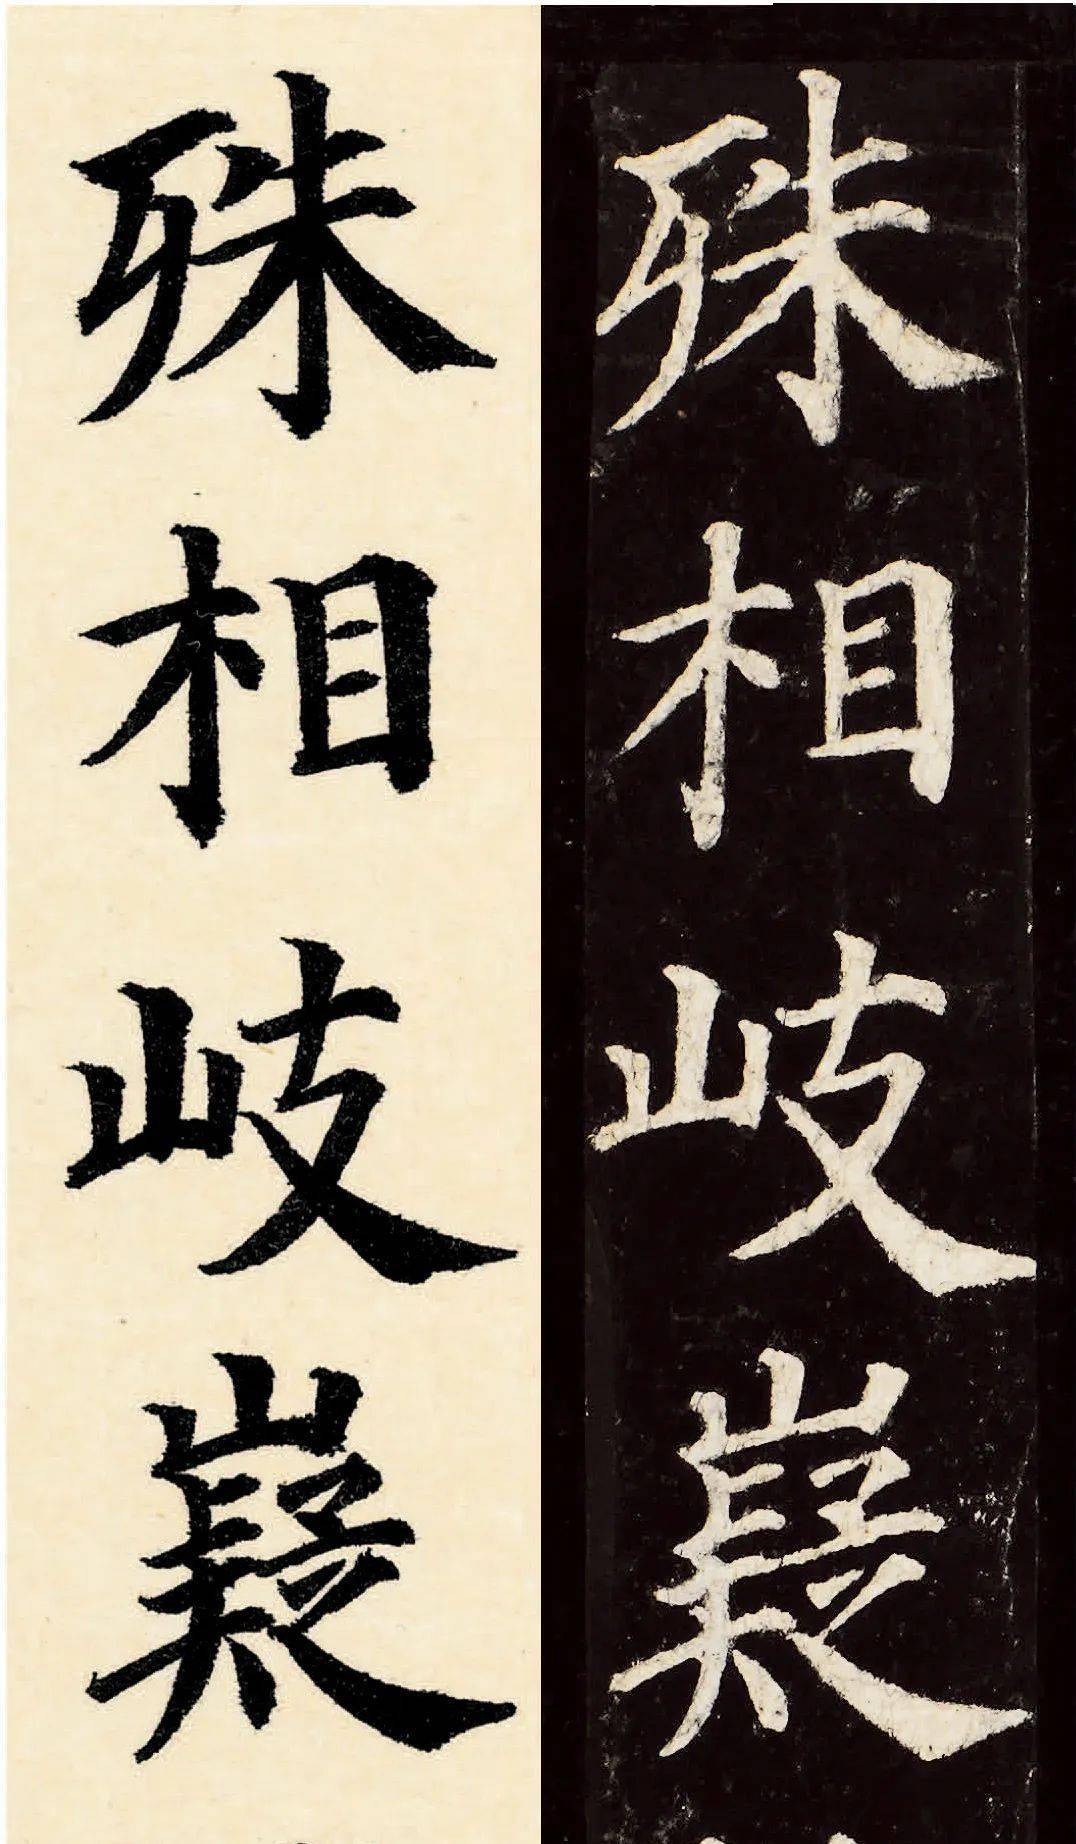 殊相岐嶷
殊相岐嶷